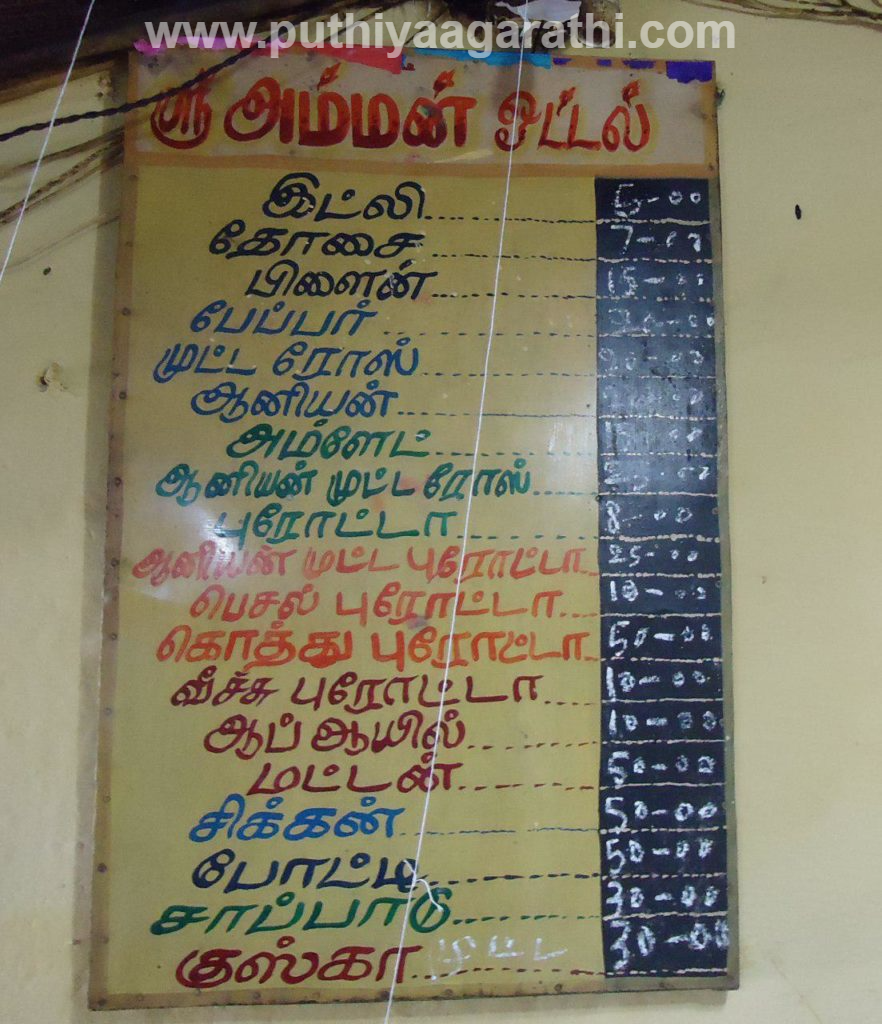 www.puthiyaagarathi.com
ஸ்ரீ அம்மன் ஒட்டல்
இட்லி 5-00
தோசை 7-00
பிளைன் 15-00
பேப்பர்
முட்ட ரோஸ் 20-00
ஆனியன்
அம்ளேட்
ஆனியன் முட்ட ரோஸ்
புரோட்டா 8-00
ஆனியன் முட்ட புரோட்டா 25-00
பெசல் புரோட்டா 10-00
கொத்து புரோட்டா 50-00
வீச்சு புரோட்டா 10-00
ஆப் ஆயில் 10-00
மட்டன் 50-00
சிக்கன் 50-00
போட்டி 50-00
சாப்பாடு 30-00
குஸ்கா முட்ட 30-00